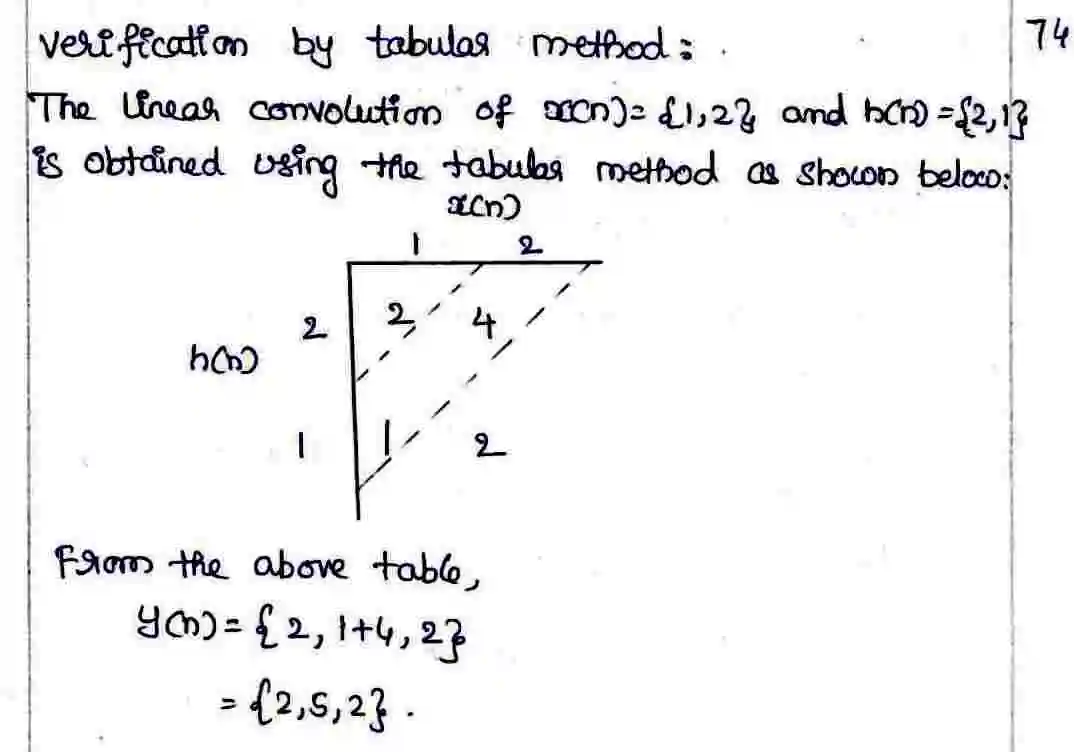 74
verification by tabular method:
The linear convolution of x(n)= {1,2} and h(n)={2,1}
is obtained using the tabular method as shown below:
x(n)
1 2
2 2 4
h(n)
1 1 2
From the above table,
y(n)= {2, 1+4, 2}
= {2,5,2}.